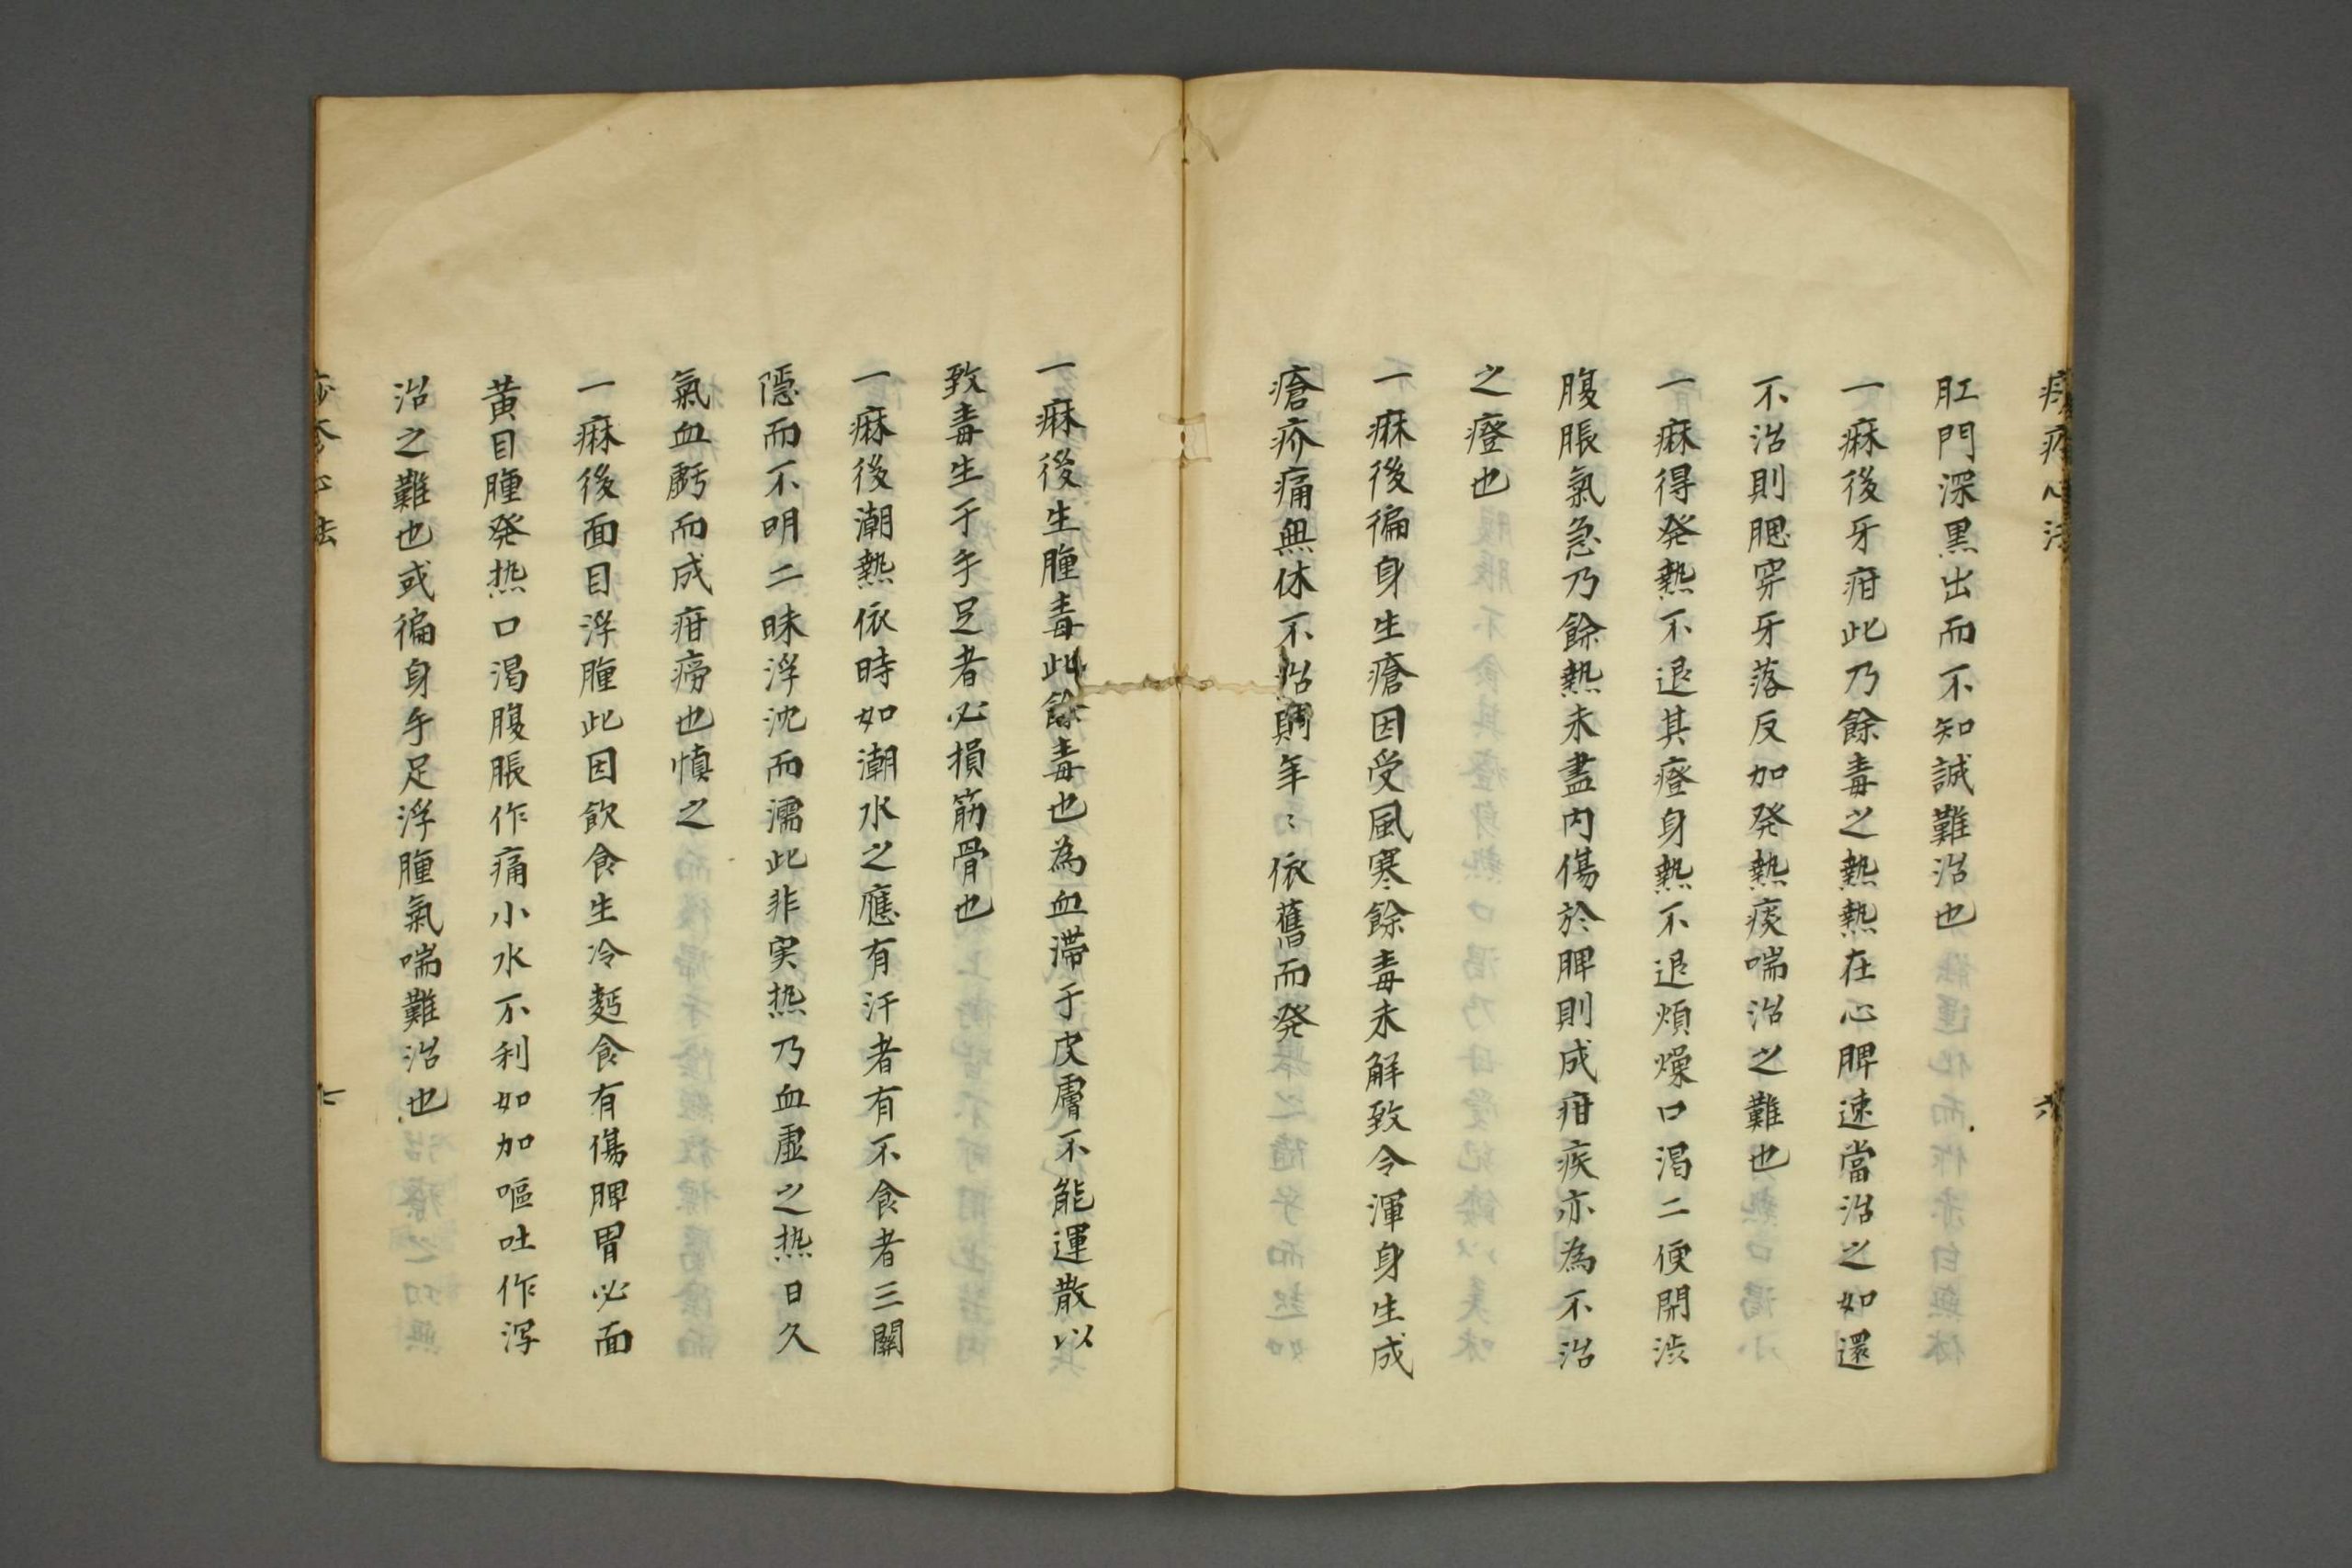 肛門深黒出而不知誠難治也
一痳後牙疳此乃餘毒之熱熱在心脾速當治之如還
不治則腮穿牙落反加発熱痰喘治之難也
一痳得発熱不退其癥身熱不退煩燥口渴二便閉渋
腹脹氣急乃餘熱未盡内傷於脾則成疳疾亦為不治
之癥也
一痳後徧身生瘡因受風寒餘毒未解致令渾身生成
瘡疥痛無休不治則年〻依舊而発
六
一痳後生腫毒此餘毒也為血滞于皮膚不能運散以
致毒生于手足者必損筋骨也
一痳後潮熱依時如潮水之應有汗者有不食者三關
隱而不明二昧浮沈而濡此非実热乃血虛之热日久
氣血虧而成疳癆也慎之
一痳後面目浮腫此因飲食生冷麪食有傷脾胃必面
黄目腫発热口渴腹脹作痛小水不利如加嘔吐作泻
治之難也或徧身手足浮腫氣喘難治也